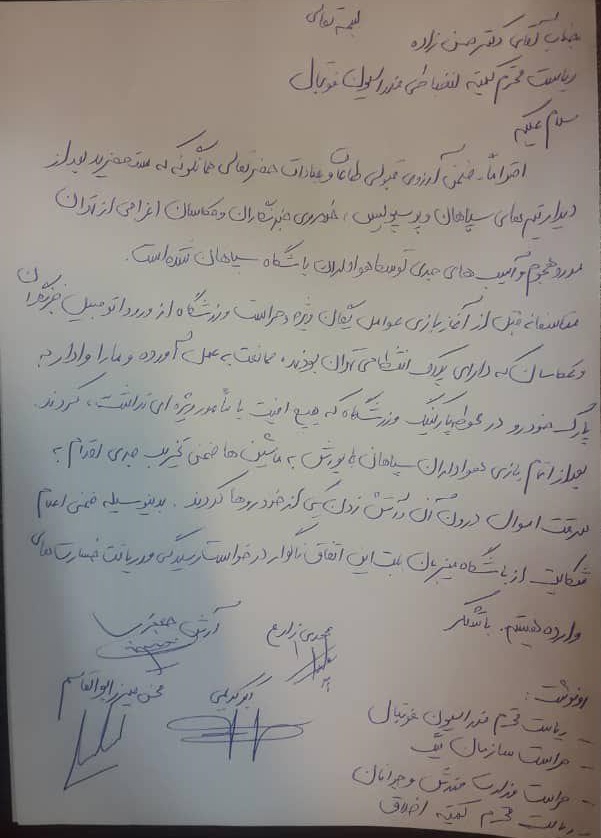 بسمه تعالی
جناب آقای دکتر حسن زاده
ریاست محترم کمیته انضباطی فدراسیون فوتبال
سلام علیکم
احتراماً، ضمن آرزوی قبولی طاعات و عبادات حضرتعالی همانگونه که مستحضرید بعد از
دیدار تیم های سپاهان و پرسپولیس، خودروی خبرنگاران و عکاسان اعزامی از تهران
مورد هجوم و آسیب های جدی توسط هواداران باشگاه سپاهان شده است.
متاسفانه قبل از آغاز بازی عوامل یگان ویژه و حراست ورزشگاه از ورود اتومبیل خبرنگاران
و عکاسان که دارای پلاک انتظامی تهران بودند، ممانعت به عمل آورده و ما را وادار به
پارک خودرو در محوطه پارکینگ ورزشگاه که هیچ امنیت یا مأمور ویژه ای نداشت، کردند.
بعد از اتمام بازی هواداران سپاهان با یورش به ماشین ها ضمن تخریب جدی اقدام به
سرقت اموال درون آن و آتش زدن یکی از خودروها کردند. بدینوسیله ضمن اعلام
شکایت از باشگاه میزبان بابت این اتفاق ناگوار درخواست رسیدگی و دریافت خسارت های
وارده هستیم. باتشکر
مهدی زارع
آرش
اکبر کریمی
محسن میرزا ابوالقاسم
رونوشت:
- ریاست محترم فدراسیون فوتبال
- حراست سازمان لیگ
- حراست وزارت ورزش و جوانان
- ریاست محترم کمیته اخلاق